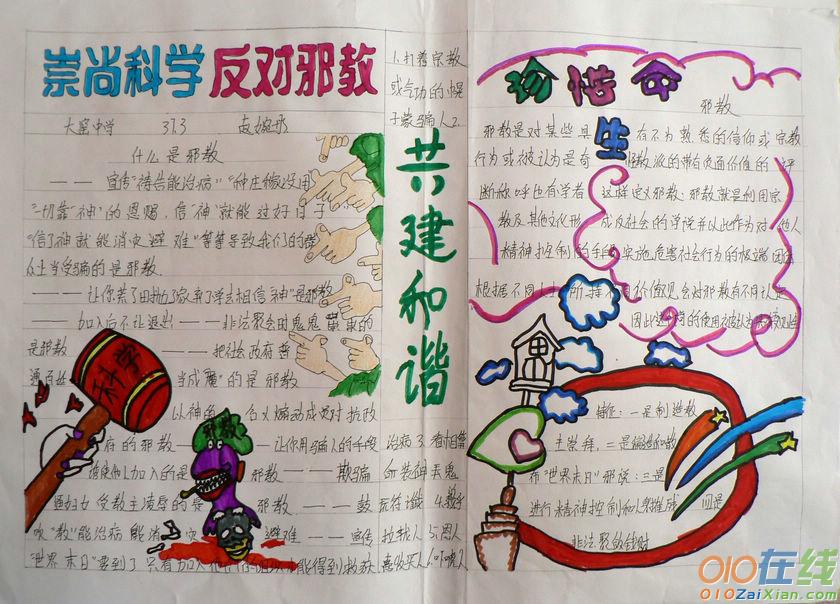 崇尚科学 反对邪教
大窑中学 373
什么是邪教
—— 宣传“祷告能治病”“种庄稼没用
“一切靠‘神’的恩赐,信‘神’就能过好日子”
“信了神就能消灾避难”等等导致我们的群
众上当受骗的是邪教.
—— 让你荒了田抛了家弃了学去相信“神”是邪教
—— 加入后不让退出 —— 非法聚会田鬼鬼祟祟的
是邪教 —— 把社会政府普
通百姓 当成魔的是邪教
以神的 名义煽动成员对抗政
府的邪教 —— 让你用骗人的手段
诱使他人加入的是 邪教 —— 欺骗
妇女受教主凌辱的是 邪教 —— 鼓
吹“教”能治病能消 灾 避难 —— 宣传
“世界末日”要到了只有加入他们的组织才能得到救赎
科学
邪教
1.打着宗教
或气功的幌
子蒙骗人2.
共建和谐
治病3.看相算
命装神弄鬼
拉拢人5.恩人
珍惜生命
邪教
邪教是对某些具 在不为熟悉的信仰或宗教
行为或被认为是奇 怪教派的带有负面价值的评
断称呼也有学者 这样定义邪教:邪教就是利用宗
教及其他文化形 成反社会的学说并以此作为对他人
精神控制的手段实施危害社会行为的极端团体
根据不同人士所持不同价值观会对邪教有不同认定
特征:一是制造教
主崇拜,二是编造和散
布“世界末日”邪说:三是
进行精神控制和人身摧残 四是
非法聚敛钱财
010在线
010ZaiXian.com